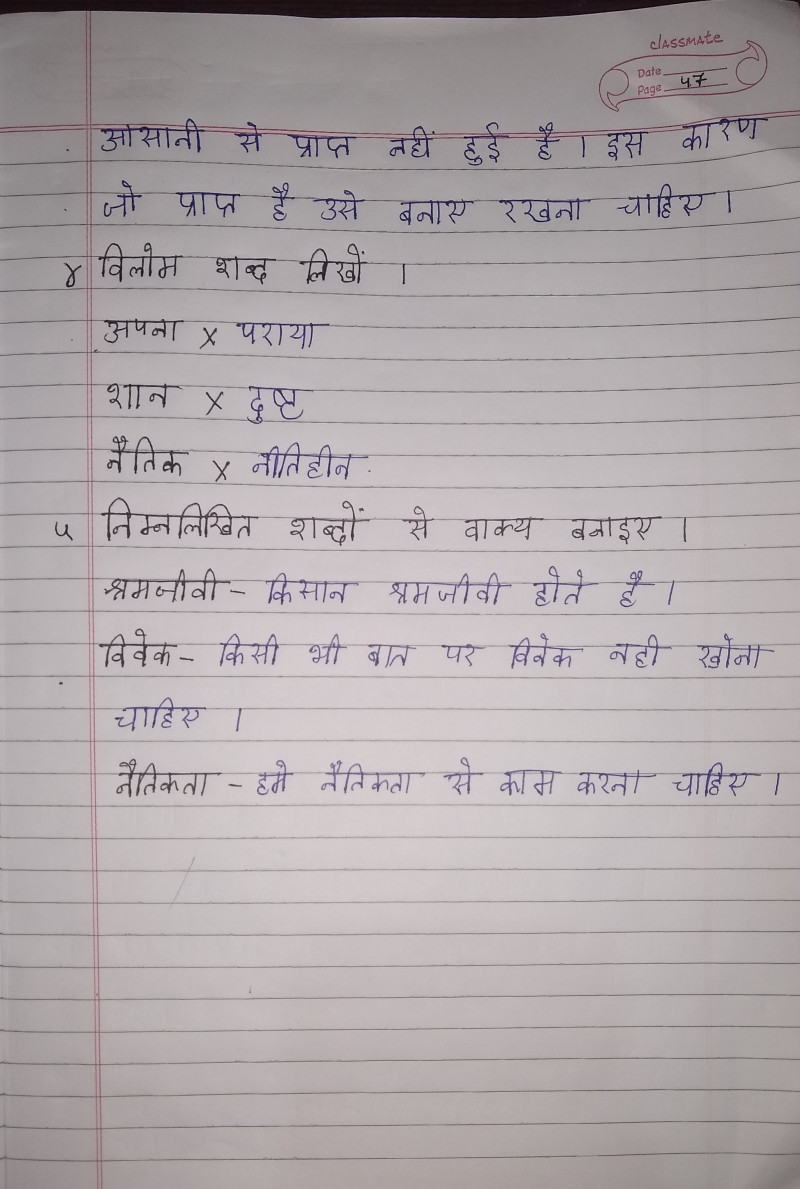 classmate
Date
Page 47
आसानी से प्राप्त नहीं हुई है । इस कारण
जो प्राप्त है उसे बनाए रखना चाहिए ।
४ विलोम शब्द लिखों ।
अपना x पराया
शान x दुष्ट
नैतिक x नीतिहीन.
५ निम्नलिखित शब्दों से वाक्य बनाइए ।
श्रमजीवी - किसान श्रमजीवी होते है ।
विवेक - किसी भी बात पर विवेक नही खोना
चाहिए ।
नैतिकता - हमे नैतिकता से काम करना चाहिए ।